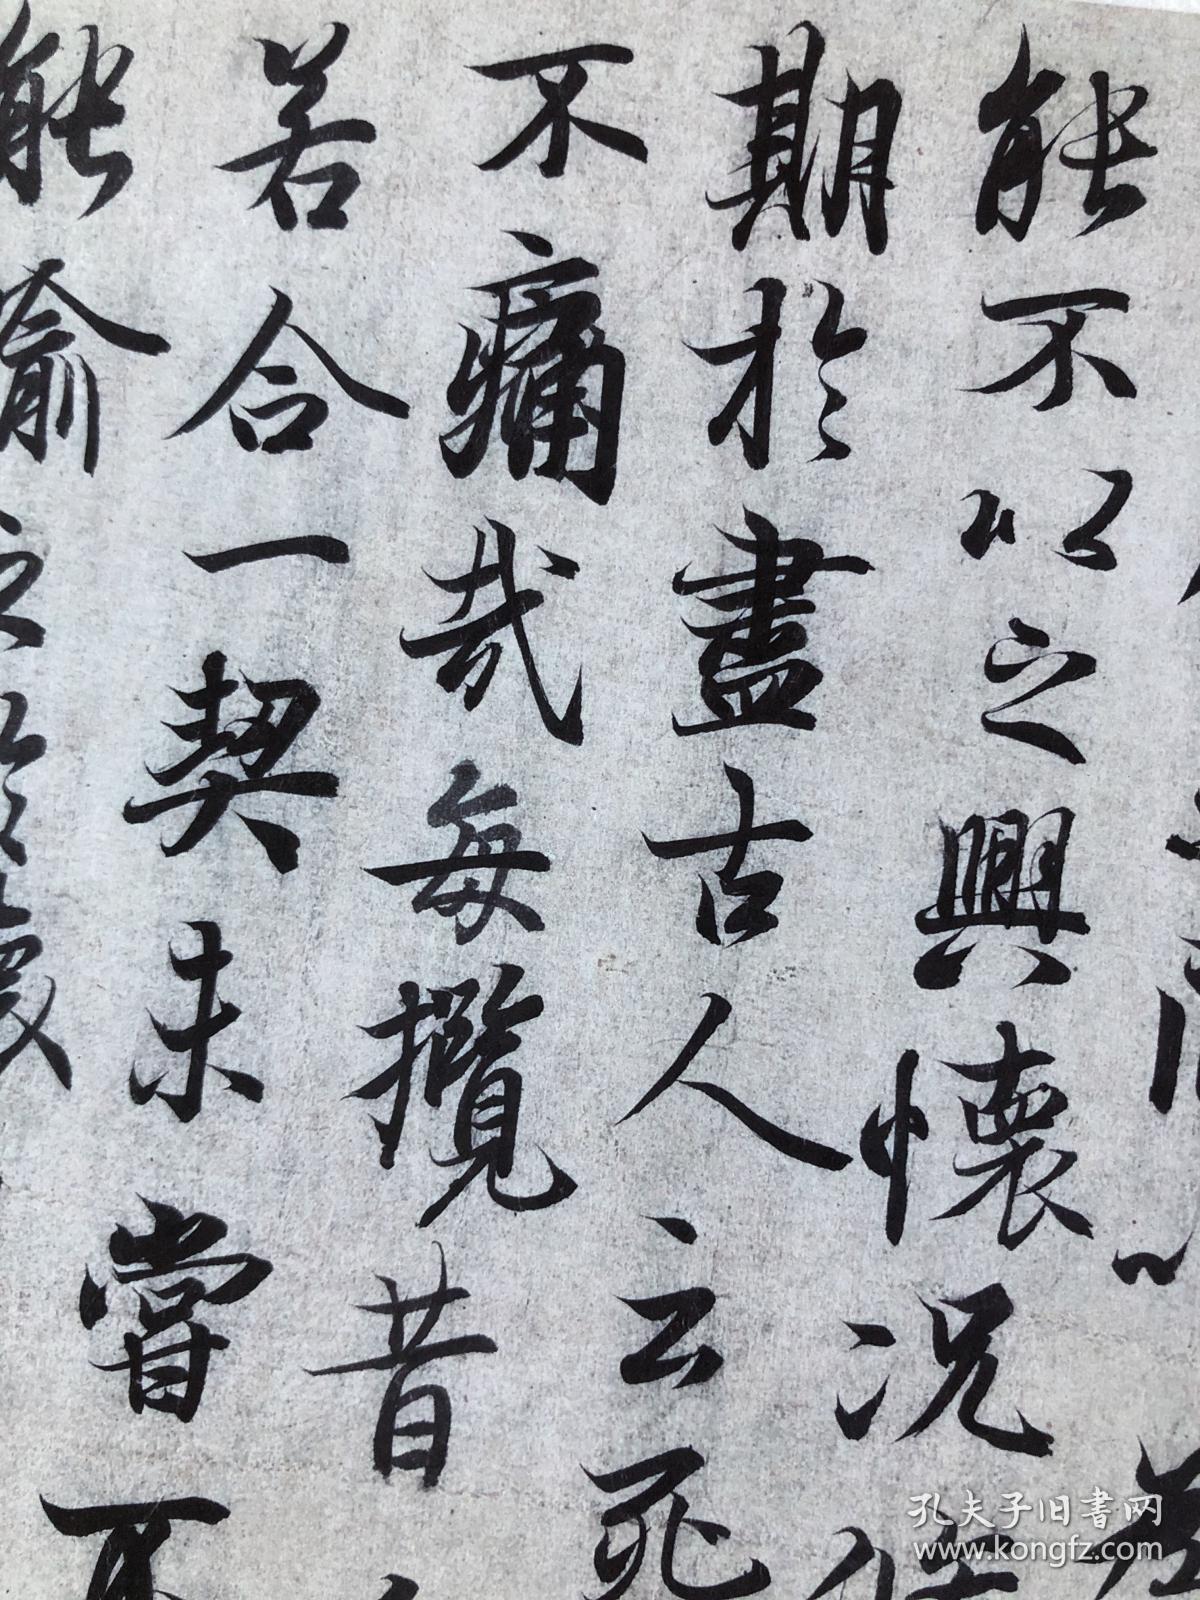 能不以之興懷况
期於盡古人云死
不痛哉每攬昔
若合一契未嘗不
能喻之於懷
孔夫子旧書网
www.kongfz.com